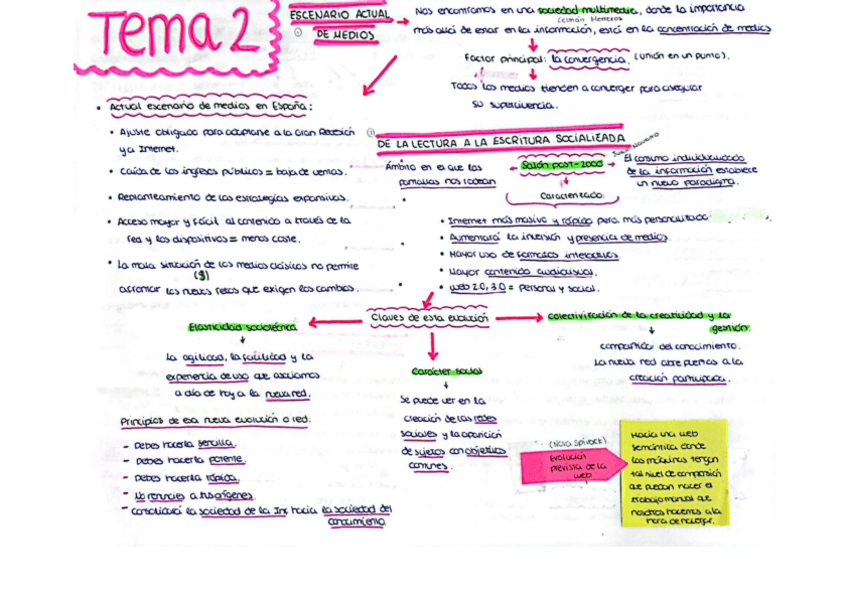 Tema 2
ESCENARIO ACTUAL
① DE MEDIOS
Nos encontramos en una sociedad multimedia, donde la importancia
Germán Herreros
más allá de estar en la información, está en la concentración de medios
Factor principal: la convergencia. (unión en un punto).
Todos los medios tienden a converger para asegurar
su supervivencia.
• Actual escenario de medios en España:
• Ajuste obligado para adaptarse a la Gran Recesión
y a Internet.
• Caída de los ingresos públicos = baja de ventas.
• Replanteamiento de las estrategias expansivas.
• Acceso mayor y fácil al contenido a través de la
red y los dispositivos = menos coste.
• La mala situación de los medios clásicos no permite
afrontar los nuevos retos que exigen los cambios.
② DE LA LECTURA A LA ESCRITURA SOCIALIZADA
Ámbito en el que las
pantallas nos rodean
Salón post-2000
El consumo individualizado
de la información establece
un nuevo paradigma.
Caracterizado:
• Internet más masivo y rápido pero más personalizado.
• Aumentará la inversión y presencia de medios.
• Mayor uso de formatos interactivos
• Mayor contenido audiovisual.
• Web 2.0, 3.0 = personal y social.
Claves de esta evolución
Elasticidad sociotécnica
La agilidad, la facilidad y la
experiencia de uso que asociamos
a día de hoy a la nueva red.
Principios de esa nueva evolución o red:
- Debes hacerla sencilla.
- Debes hacerla potente.
- Debes hacerla rápida.
- No renuncies a tus orígenes.
- Contribuirá la sociedad de la Inf hacia la sociedad del
conocimiento
Carácter social
Se puede ver en la
creación de las redes
sociales y la aparición
de sujetos con objetivos
comunes.
Colectivización de la creatividad y la
gestión:
compartida del conocimiento.
La nueva red abre puertas a la
creación participativa.
(Nova Spivack)
Evolución
prevista de la
web
Hacia una web
semántica donde
las máquinas tengan
tal nivel de comprensión
que puedan hacer el
trabajo manual que
nosotros hacemos a la
hora de navegar.